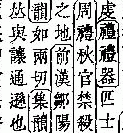 處禮禮器匹士
周禮秋官禁殺
之地前漢鄒陽
韻如兩切集韻
𠀤與讓通遜也